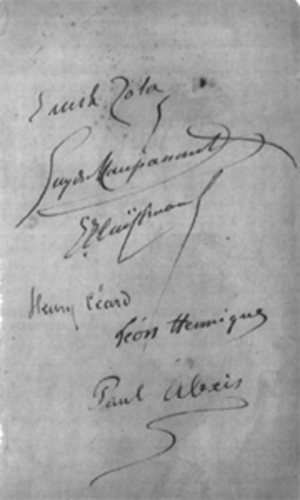 Emile Zola
Guy de Maupassant
J K Huÿsmans
Henry Céard
Léon Hennique
Paul Alexis